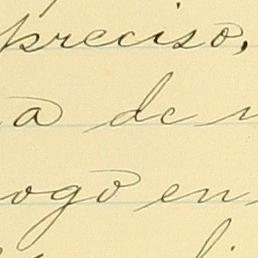 preciso,
a de
ogo en